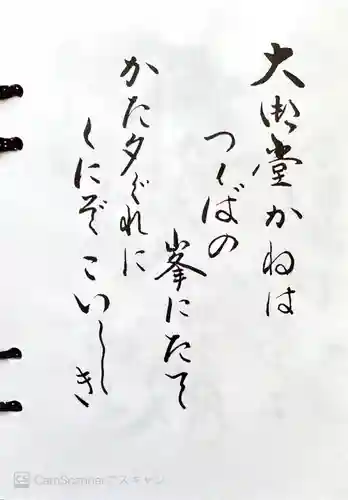 大御堂かねは
つくばの
峯にたて
かた夕ぐれに
くにぞこいしき
CamScannerでスキャン